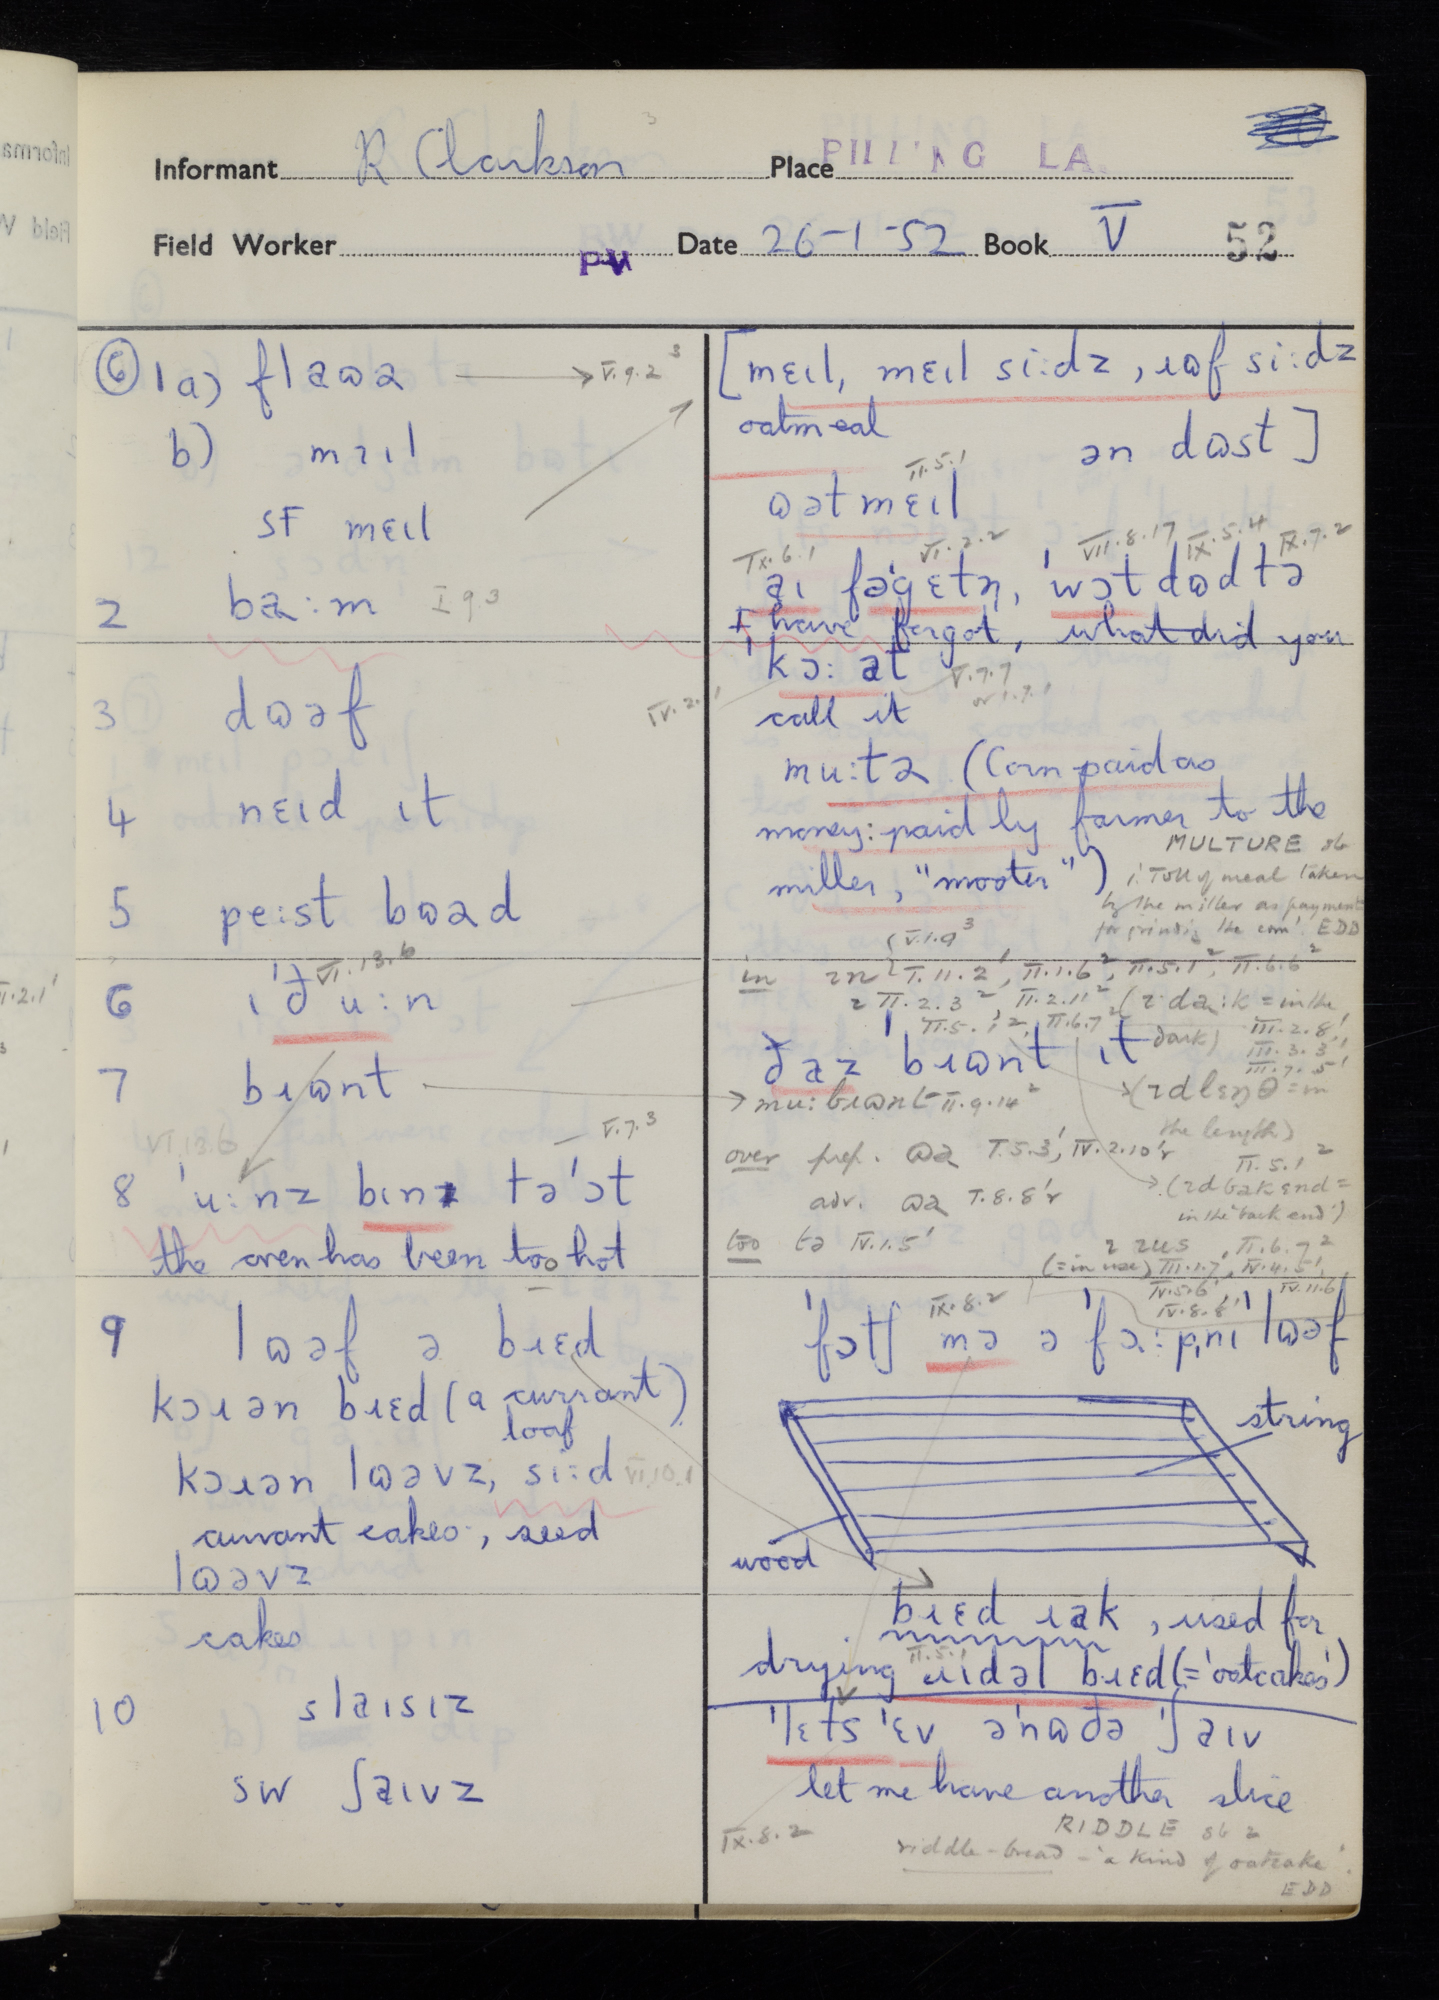 Informant R Clarkson Place PILLING LA.
Field Worker PW Date 26-1-52 Book V 52
⑥ 1a) flaɷə → V.9.2³
b) mɛɩl
SF mɛɩl
2 ba:m I 9.3
3 dɷəf
4 nɛɩd ɩt
5 pe:st bɷəd
6 ɩ'ð u:n VI.13.6
7 bɹɷnt
VI.13.6 V.7.3
8 'u:nz bɩn tə'ɔt
the oven has been too hot
9 lɷəf ə bɹɛd
kɔɹən bɹɛd (a currant loaf)
kɔɹən lɷəvz, si:d VI.10.1
currant cakes, seed
lɷəvz
cakes
10 slaɩsɩz
SW ʃaɩvz
[mɛɩl, mɛɩl si:dz, ɹɷf si:dz
oatmeal ən dɷst]
II.5.1
ɷətmɛɩl
IX.6.1 VI.2.2 VII.8.17 IX.5.4 IX.7.2
aɩ fə'gɛtn, 'wɔt dɷd tə
I have forgot, what did you
'kɔ: at V.7.7
IV.2.1
call it
mu:tə (Corn paid as
money: paid by farmer to the
miller, "mooter")
MULTURE sb
1. 'Toll of meal taken
by the miller as payment
for grinding the corn'. EDD
V.1.9³
in ɩn I.11.2', II.1.6², II.5.1², II.6.6²
II.2.3² II.2.11² (ɩ da:k = in the
dark) II.5.1², II.6.7² III.2.8'
III.3.3'
III.7.5'
ðaz 'bɹɷnt ɩt
mu: bɹɷnt II.9.14² (ɩd lɛŋθ = in
the length)
II.5.1²
over prep. ɷə I.5.3', IV.2.10'r
adv. ɷə I.8.8'r
(ɩd bak end =
in the 'back end')
too tə IV.1.5'
ɩ ɩus II.6.7²
(= in use) III.1.7', IV.4.5',
IV.5.6', IV.11.6
IV.8.8'
IX.8.2
'fɔtʃ mə ə 'fɔ:pnɩ lɷəf
string
wood
bɹɛd ɹak, used for
II.5.1
drying ɹɩdəl bɹɛd (= 'oatcakes')
'lɛts 'ɛv ə'nɷðə 'ʃaɩv
let me have another slice
IX.8.2
RIDDLE sb 2
riddle-bread – 'a kind of oatcake'.
EDD